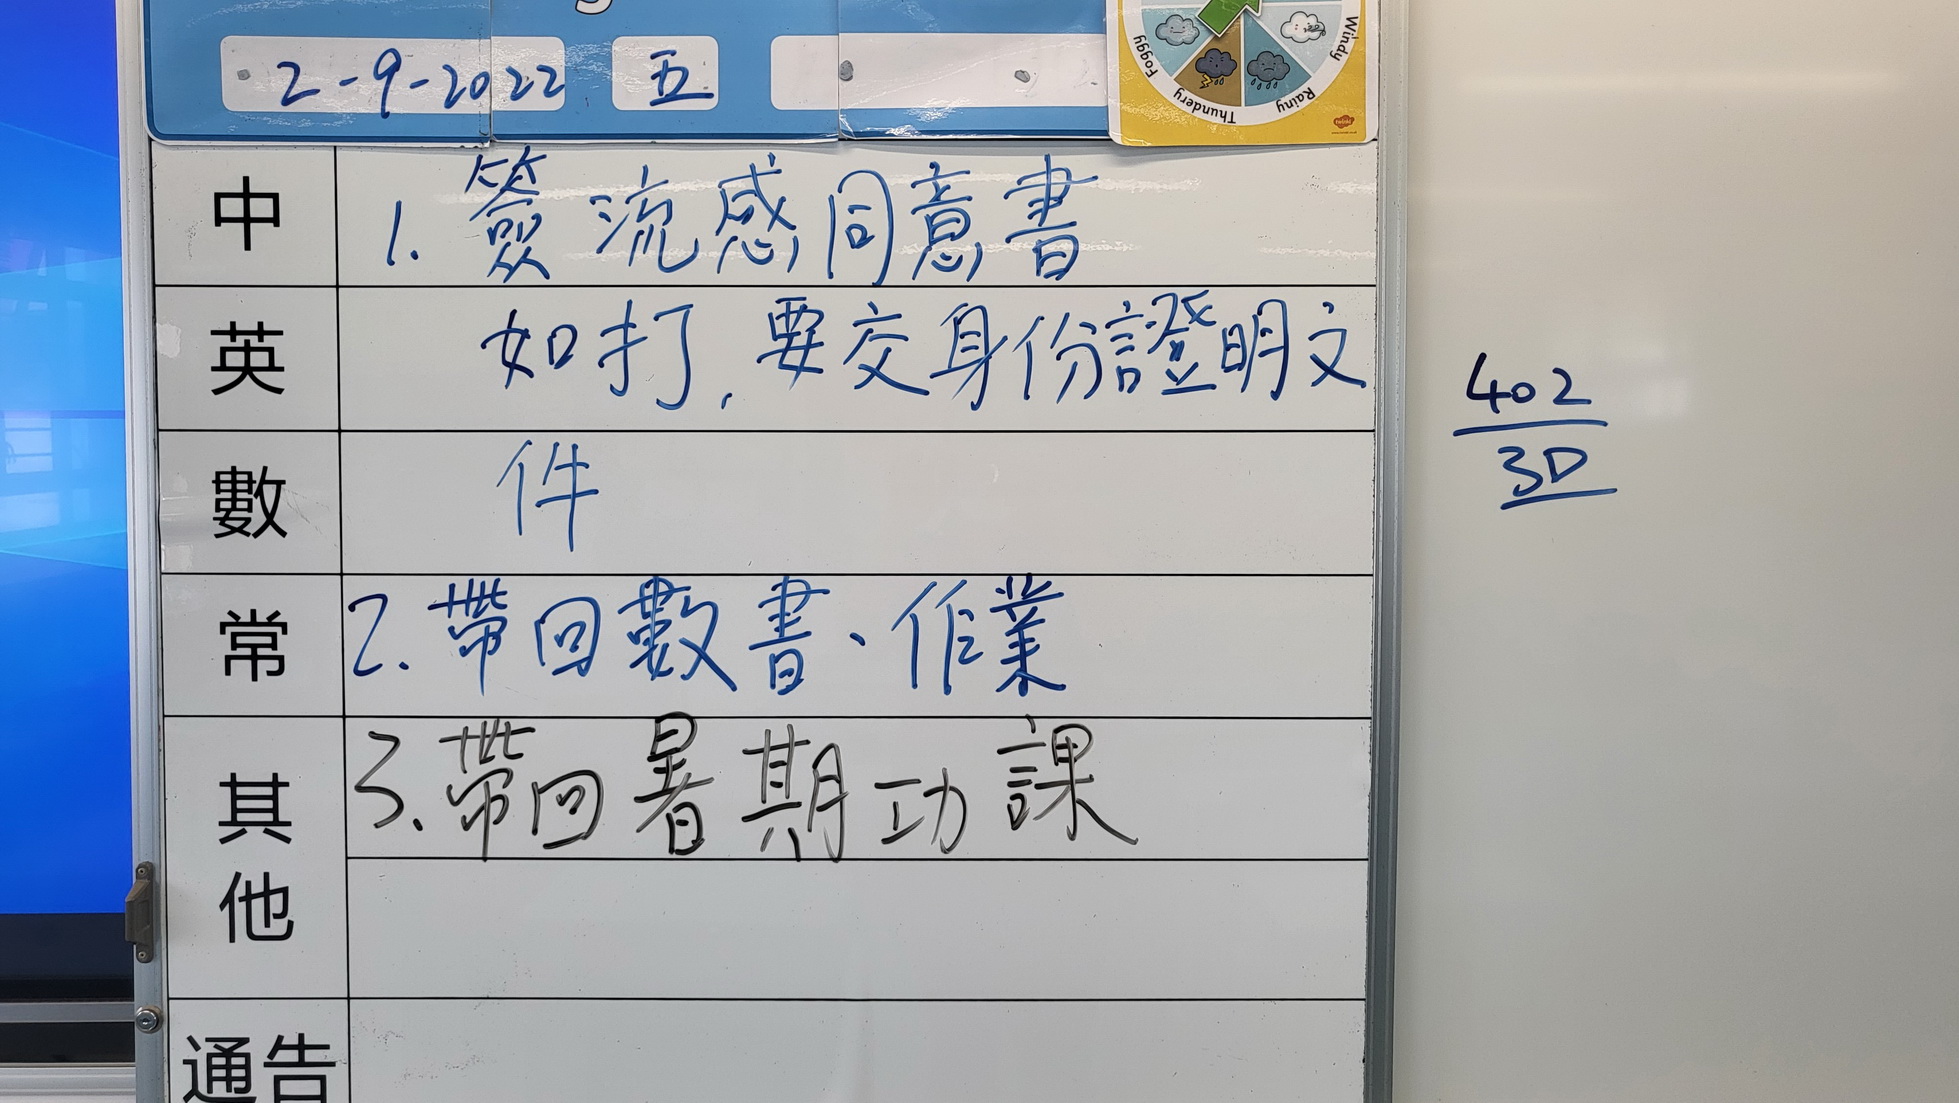 2-9-2022 五
Foggy
Thundery
Rainy
Windy
中 1. 簽流感同意書
英 如打,要交身份證明文
數 件
常 2. 帶回數書、作業
其他 3. 帶回暑期功課
通告
402
3D